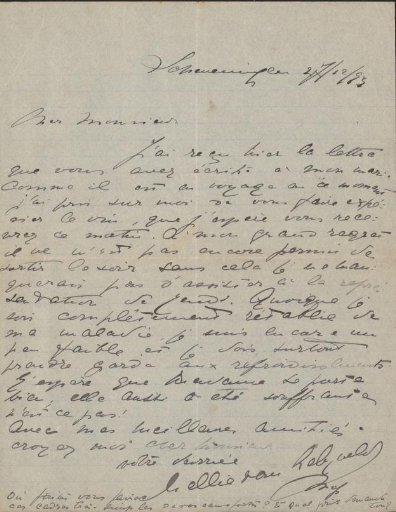 Scheveningen 27/12/93
Cher Monsieur
J'ai reçu hier la lettre
que vous avez écrite à mon mari.
Comme il est en voyage en ce moment
j'ai pris sur moi de vous faire expé-
dier le vin, que j'espère vous rece-
vrez ce matin. A mon grand regret
il ne m'est pas encore permis de
sortir le soir sans cela je ne man-
querais pas d'assister à la repré
sentation de jeudi. Quoique je
sois complètement rétablie de
ma maladie je suis encore un
peu faible et je dois surtout
prendre garde aux refroidissements
J'espère que Madame se porte
bien, elle aussi a été souffrante
n'est ce pas!
Avec mes meilleures amitiés
croyez moi cher Monsieur
votre dévouée
Nellie van